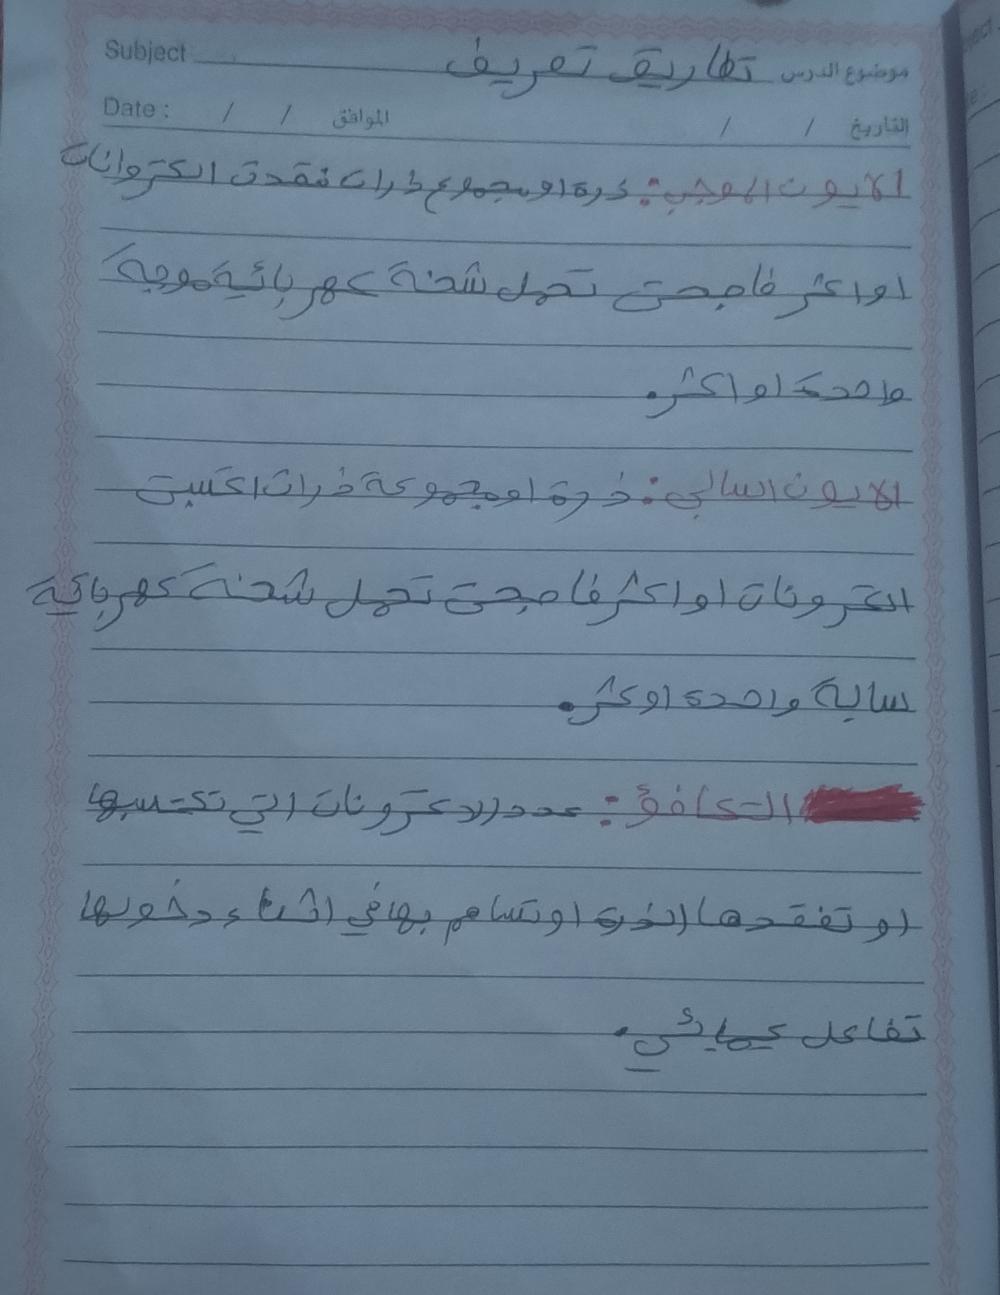 Subject موضوع الدرس تعاريف تعريف
Date : / / الموافق / / التاريخ
الايون الموجب: ذرة او مجموع ذرات فقدت الكتروانات
او اكثر فاصبحت تحمل شحنة كهربائية موجبة
واحدة او اكثر.
الايون السالب: ذرة او مجموعة ذرات اكتسبت
الكترونات او اكثر فاصبحت تحمل شحنة كهربائية
سالبة واحدة او كثر.
التكافؤ: عدد الاكترونات التي تكتسبها
او تفقدها الذرة او تساهم بها في اثناء دخولها
تفاعل كيميائي.